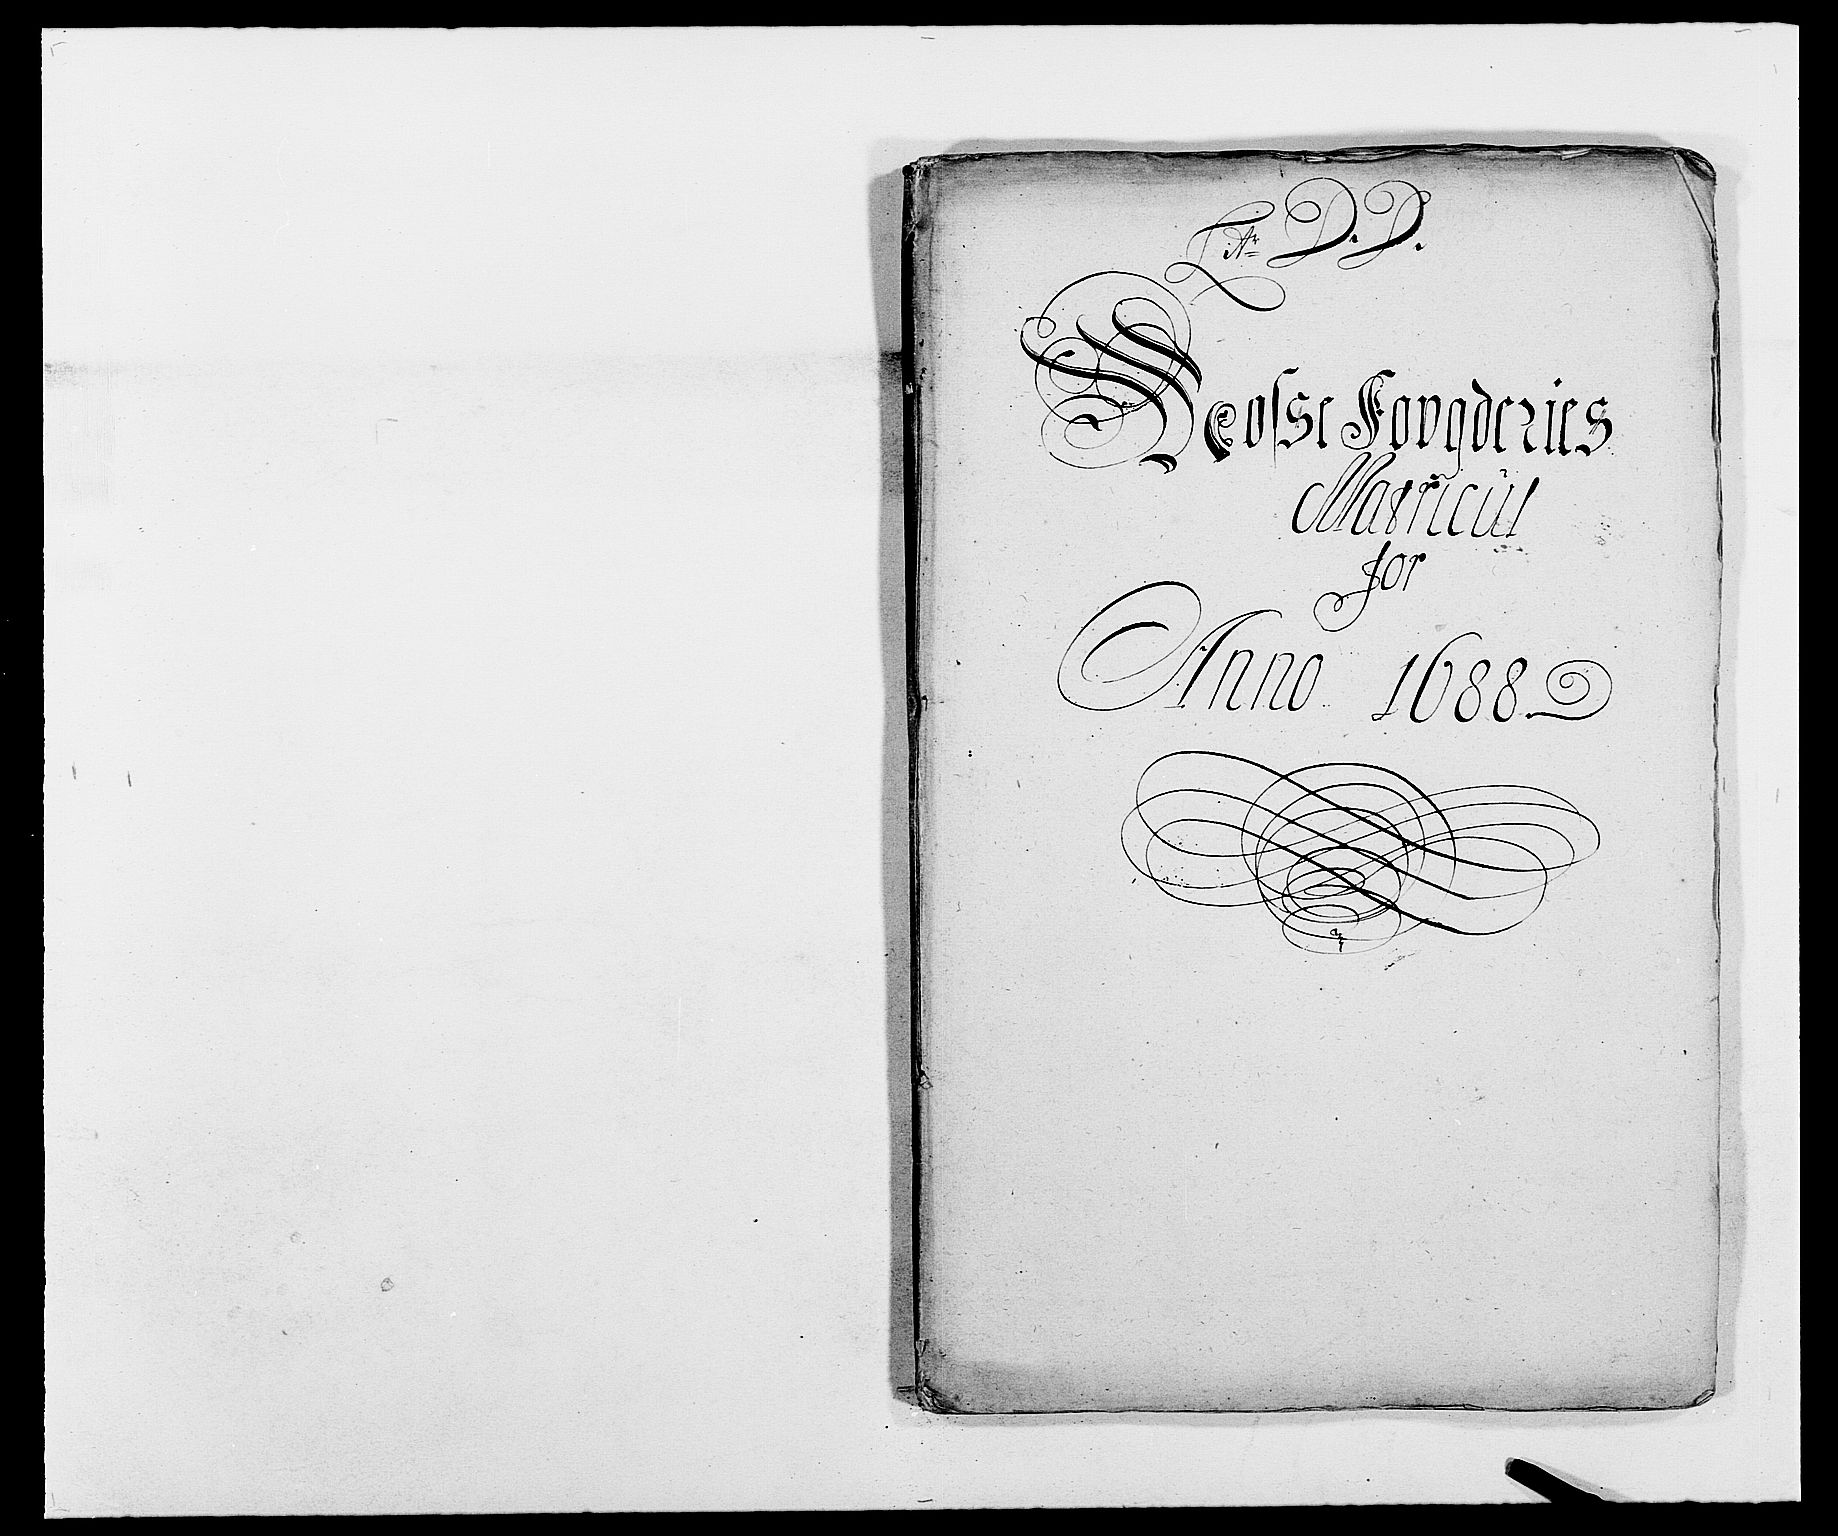 D. D.
Mosse Fougderies
Matricul
for
Anno 1688